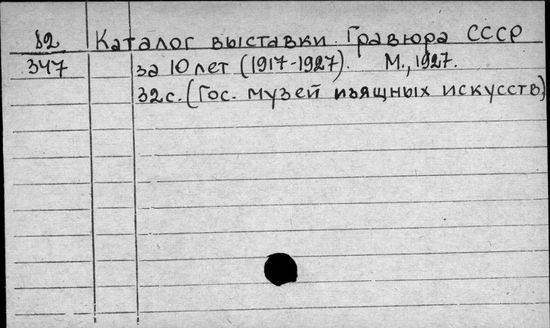 82 Каталог выставки Гравюра СССР
347 за 10 лет (1917-1927). М., 1927.
32с. (Гос. музей изящных искусств)